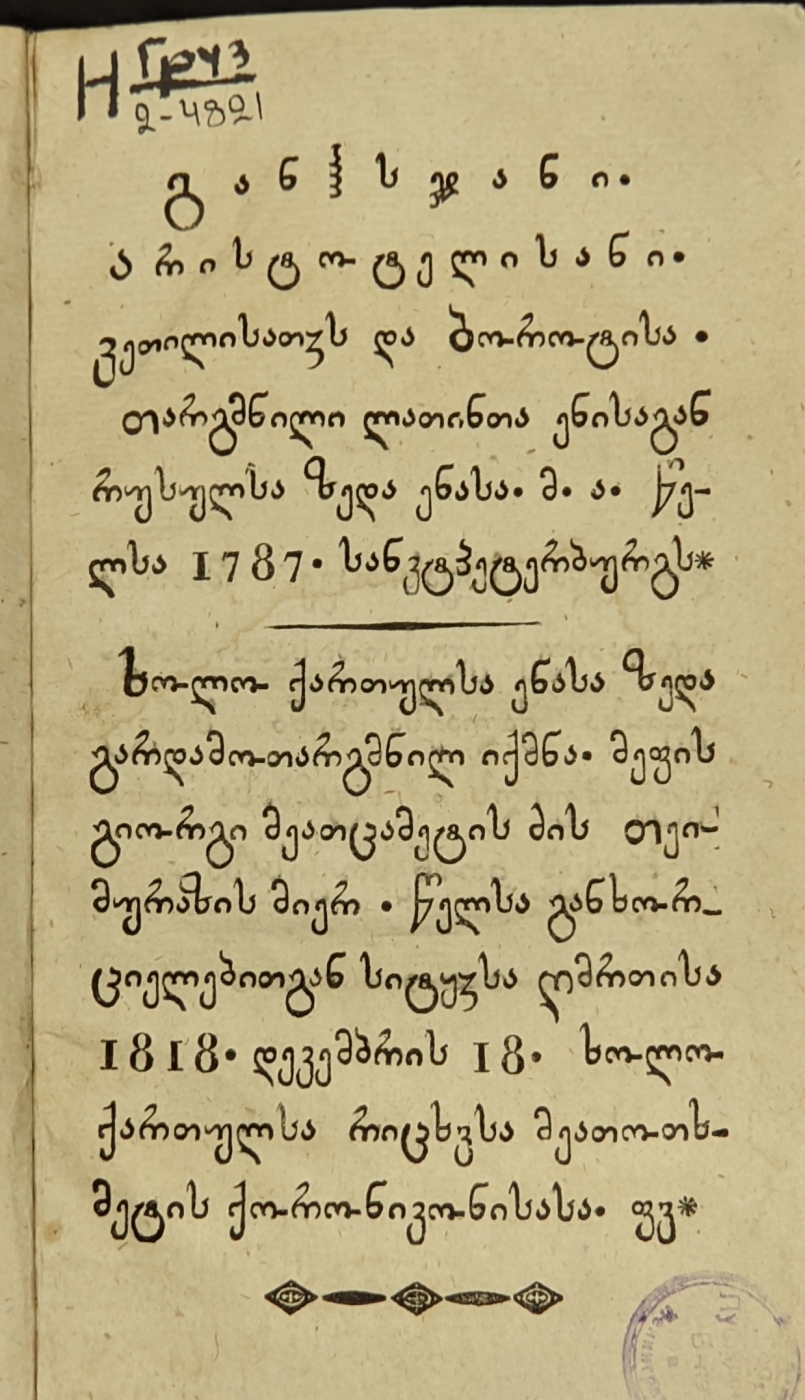 Н Груз
2-4821
განჭსჯანი.
არისტოტელისანი.
კეთილისათჳს და ბოროტისა.
თარგმნილი ლათინთა ენისაგან
რუსულსა ზედა ენასა. მ. ა. წე-
ლსა 1787. სანკტპეტერბურგს*
ხოლო ქართულსა ენასა ზედა
გარდამოთარგმნილ იქმნა. მეფის
გიორგი მეათცამეტის ძის თეი-
მურაზის მიერ. წელსა განხორ-
ციელებითგან სიტყჳსა ღმრთისა
1818. დეკემბრის 18. ხოლო
ქართულსა რიცხვსა მეათოთხ-
მეტის ქორონიკონისასა. ფვ*